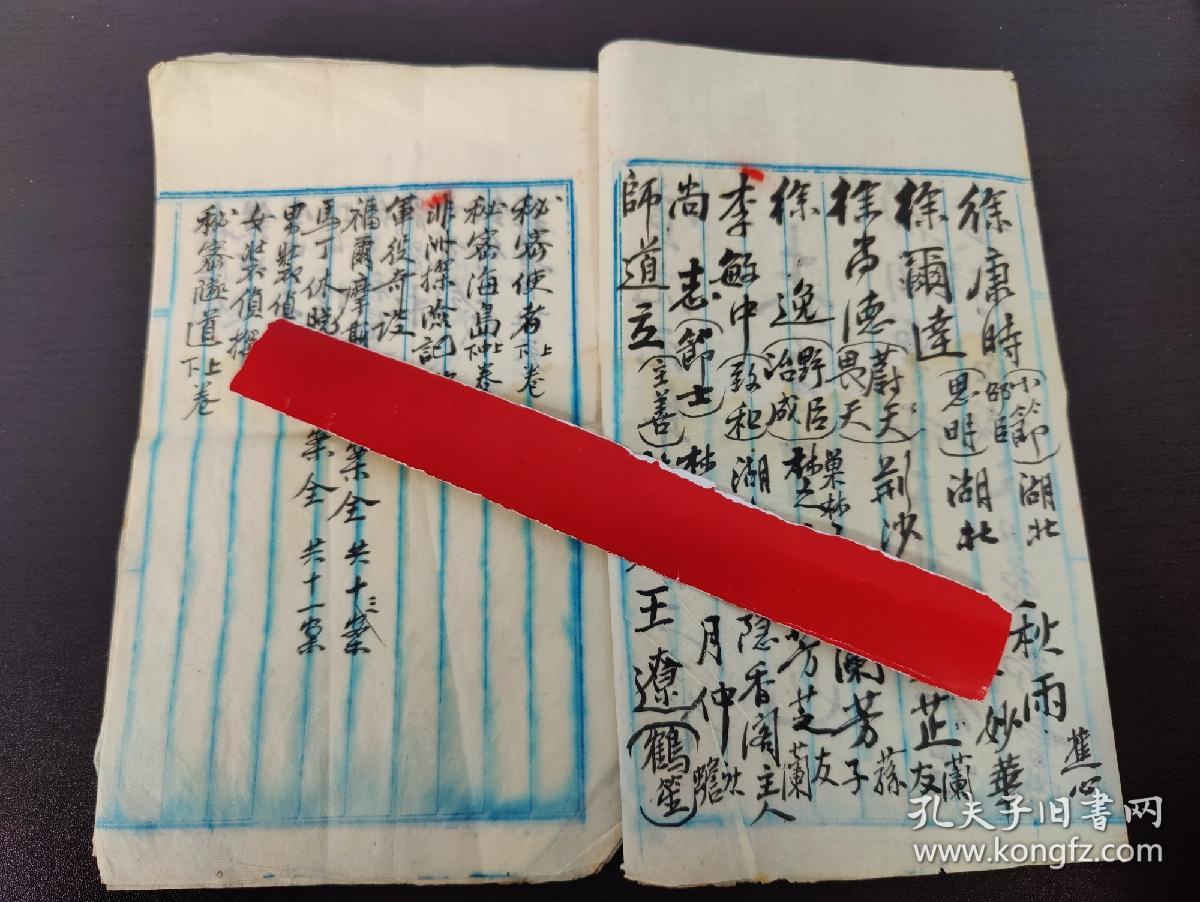 徐康時(小節 邵臣)湖北 秋雨 蕉心
徐爾達(思時)湖北 妙華
徐尚德(蔚天 畏天)荊沙 芷 蘭友
徐逸(野臣 治成) 蘭芳 蓀子
李敏中(致和)湖 芳芝 蘭友
尚志(節士)楚 隐香閣主人
師道立(主善) 月仲
王遼(鶴笙)
秘密使者上下卷
秘密海島上中下卷
非洲探險記
軍役奇談
福爾摩斯 案全 共十三案
馬丁休脱 案全 共十一案
男裝偵
女裝偵探
秘密隧道上下卷
孔夫子旧書网
www.kongfz.com